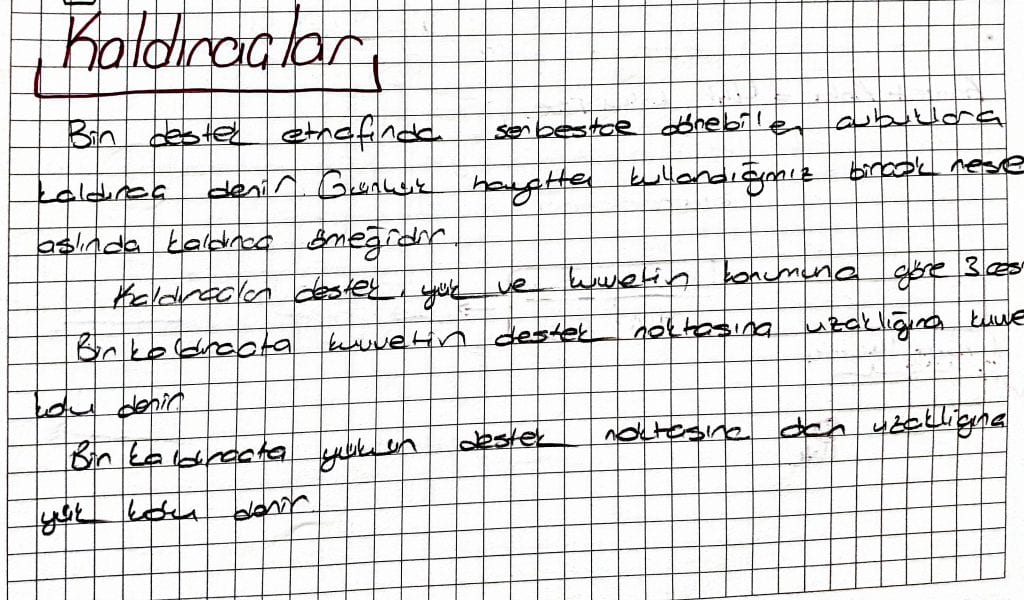 Kaldıraçlar
Bir destek etrafında serbestçe dönebilen çubuklara
kaldıraç denir. Günlük hayatta kullandığımız birçok nese
aslında kaldıraç örneğidir.
Kaldıraçlar destek, yük ve kuvvetin konumuna göre 3 çeş
Bir kaldıraçta kuvvetin destek noktasına uzaklığına kuvve
kolu denir
Bir kaldıraçta yükün destek noktasına dan uzaklığına
yük kolu denir.